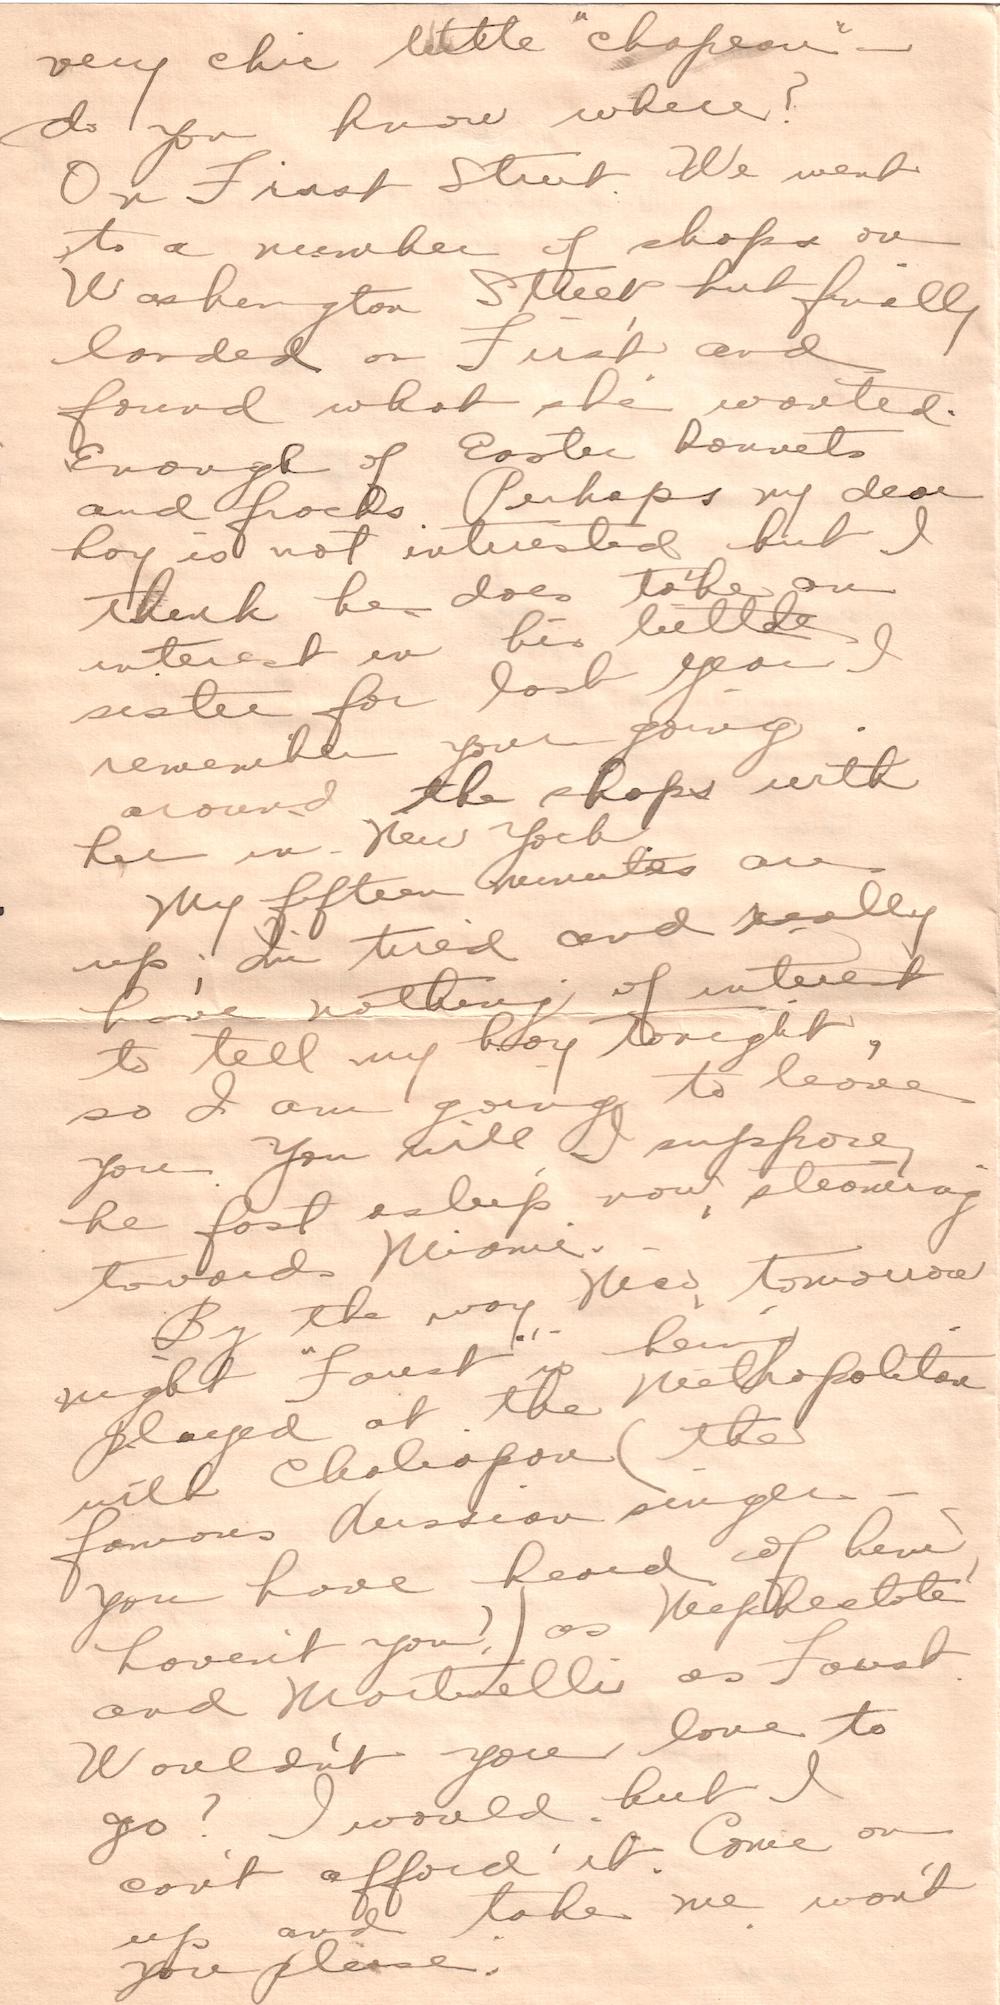 very chic little "chapeau" —
do you know where?
On First Street. We went
to a number of shops on
Washington Street but finally
landed on First and
found what she wanted.
Enough of Easter bonnets
and frocks Perhaps my dear
boy is not interested but I
think he does take an
interest in his little
sister for last year I
remember your going
around the shops with
her in New York
My fifteen minutes are
up; I'm tired and really
have nothing of interest
to tell my boy tonight,
so I am going to leave
you. You will I suppose,
be fast asleep now, steaming
towards Miami. -
By the way Med, tomorrow
night "Faust" is being
played at the Methopolitan
with Chaliapan (the
famous Russian singer -
you have heard of him,
haven't you?) as Mephestote
and Martinelli as Faust.
Wouldn't you love to
go? I would but I
can't afford it. Come on
up and take me won't
you please.